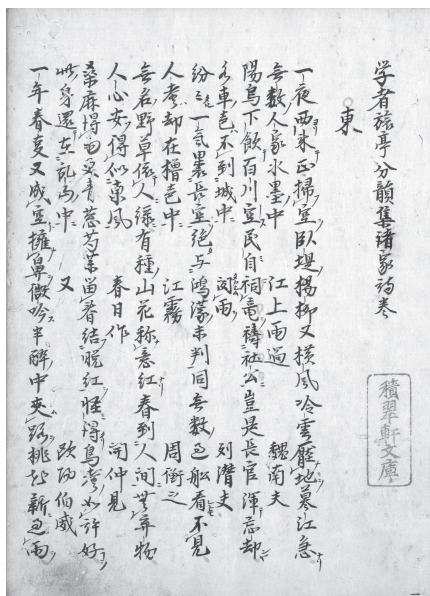 学者旅亭分韻集諸家詩巻
東
一夜西来正掃空臥堤楊柳又横風冷雲籠地暮江急
無数人家水墨中 江上雨過 魏南夫
陽烏下飲百川空民自祠竜禱社公豈是長官渾忘却
水車色不到城中 閔雨 刘潜夫
紛々一气裹長空絶与鴻濛未判同無数色船看不見
人孝却在擔色中 江霧 周衡之
無名野草依人緑有種山花称意紅春到人間無弃物
人心安得似東風 春日作 閑仲見
桑麻得雨更青葱芍薬留春結晩红怪得鳥声如許好
此身還在乱山中 又 欧陽伯威
一年春夏又成空擁鼻微吟半酔中夾路桃花新過雨
積翠軒文庫